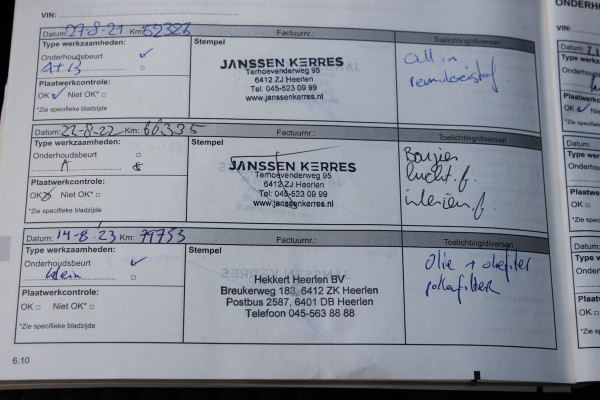 VIN:
Datum: 27-8-21 Km: 52323 Factuurnr.: Toelichting/diversen
Type werkzaamheden: Stempel
Onderhoudsbeurt ✓
A+B
Plaatwerkcontrole:
OK ✓ Niet OK*
*Zie specifieke bladzijde
JANSSEN KERRES
Terhoevenderweg 95
6412 ZJ Heerlen
Tel: 045-523 09 99
www.janssenkerres.nl
all in
remvloeistof
Datum: 22-8-22 Km: 66335 Factuurnr.: Toelichting/diversen
Type werkzaamheden: Stempel
Onderhoudsbeurt
A
Plaatwerkcontrole:
OK Niet OK*
*Zie specifieke bladzijde
JANSSEN KERRES
Terhoevenderweg 95
6412 ZJ Heerlen
Tel: 045-523 09 99
www.janssenkerres.nl
Bougies
lucht.f.
interieur.f.
Datum: 14-8-'23 Km: 79753 Factuurnr.: Toelichting/diversen
Type werkzaamheden: Stempel
Onderhoudsbeurt ✓
klein
Plaatwerkcontrole:
OK Niet OK*
*Zie specifieke bladzijde
Hekkert Heerlen BV
Breukerweg 183, 6412 ZK Heerlen
Postbus 2587, 6401 DB Heerlen
Telefoon 045-563 88 88
olie + oliefilter
pollenfilter
6.10
VIN: